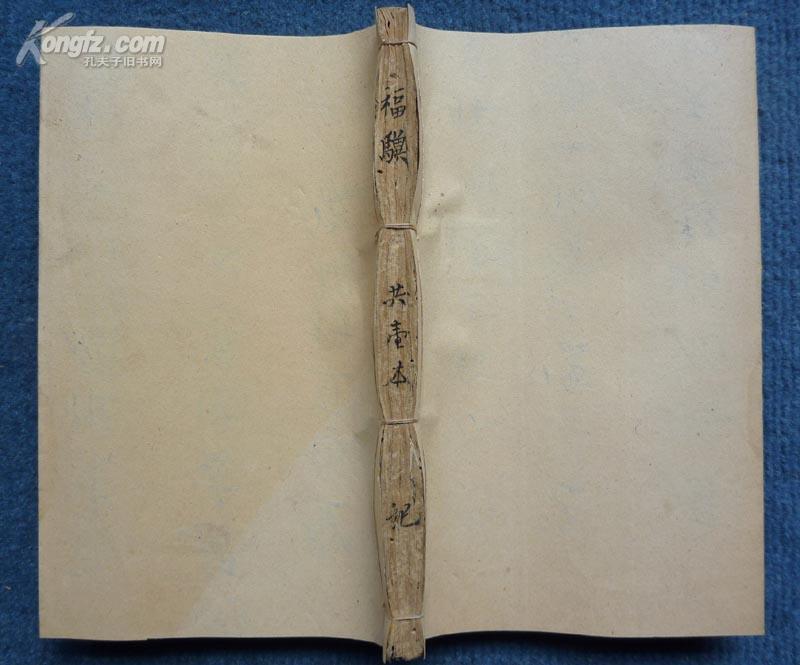 Kongfz.com
孔夫子旧书网
福驥
共壹本
記